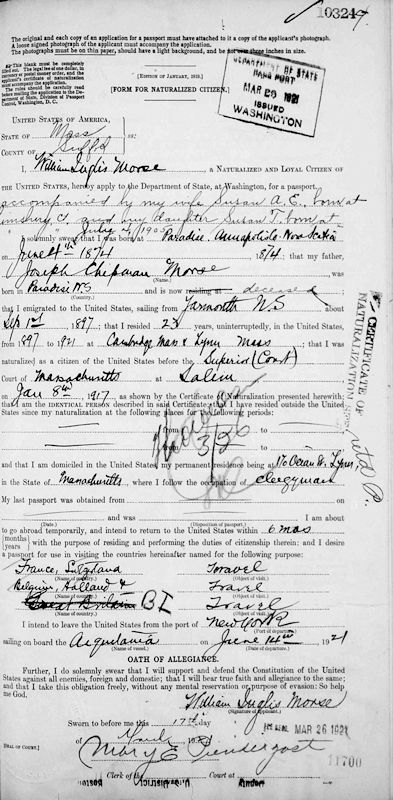 103247
The original and each copy of an application for a passport must have attached to it a copy of the applicant's photograph.
A loose signed photograph of the applicant must accompany the application.
The photographs must be on thin paper, should have a light background, and be not over three inches in size.
[EDITION OF JANUARY, 1919.]
[FORM FOR NATURALIZED CITIZEN.]
DEPARTMENT OF STATE
PASSPORT
MAR 26 1921
ISSUED
WASHINGTON
UNITED STATES OF AMERICA,
STATE OF Mass
COUNTY OF Suffolk
ss:
I, William Inglis Morse, a NATURALIZED AND LOYAL CITIZEN OF
THE UNITED STATES, hereby apply to the Department of State, at Washington, for a passport
accompanied by my wife Susan A. E., born at
Simsbury Ct and my daughter Susan T. born at
" " July 7, 1905
I solemnly swear that I was born at Paradise Annapolis Co Nova Scotia
on June 4th 1874 1874; that my father,
Joseph Chipman Morse was
born in Paradise NS and is now residing at deceased;
(Country.)
that I emigrated to the United States, sailing from Yarmouth N.S about
Sep 1st 1897; that I resided 23 years, uninterruptedly, in the United States,
from 1897 to 1921 at Cambridge Mass & Lynn Mass; that I was
naturalized as a citizen of the United States before the Superior (Court)
Court of Massachusetts at Salem
on Jan 8th, 1917 as shown by the Certificate of Naturalization presented herewith;
that I am the IDENTICAL PERSON described in said Certificate; that I have resided outside the United
States since my naturalization at the following places for the following periods:
from to
from to
3/26
and that I am domiciled in the United States, my permanent residence being at 16 Ocean St. Lynn,
in the State of Massachusetts, where I follow the occupation of clergyman
My last passport was obtained from on
and was I am about
(Date.) (Disposition of passport.)
to go abroad temporarily, and intend to return to the United States within 6 mos
[months/years] with the purpose of residing and performing the duties of citizenship therein; and I desire
a passport for use in visiting the countries hereinafter named for the following purpose:
France, Switzerland Travel
(Name of country.) (Object of visit.)
Belgium, Holland & Travel
(Name of country.) (Object of visit.)
Great Britain BI Travel
(Name of country.) (Object of visit.)
I intend to leave the United States from the port of New York
(Port of departure.)
sailing on board the Aquitania on June 14th, 1921
(Name of vessel.) (Date of departure.)
OATH OF ALLEGIANCE.
Further, I do solemnly swear that I will support and defend the Constitution of the United
States against all enemies, foreign and domestic; that I will bear true faith and allegiance to the same;
and that I take this obligation freely, without any mental reservation or purpose of evasion: So help
me God.
William Inglis Morse
(Signature of applicant.)
Sworn to before me this 17th day
MAR 26 1921
of March, 1921
[SEAL OF COURT.]
Mary E. Prendergast
11700
Clerk of the Court at
Boston
CERTIFICATE OF
NATURALIZATION